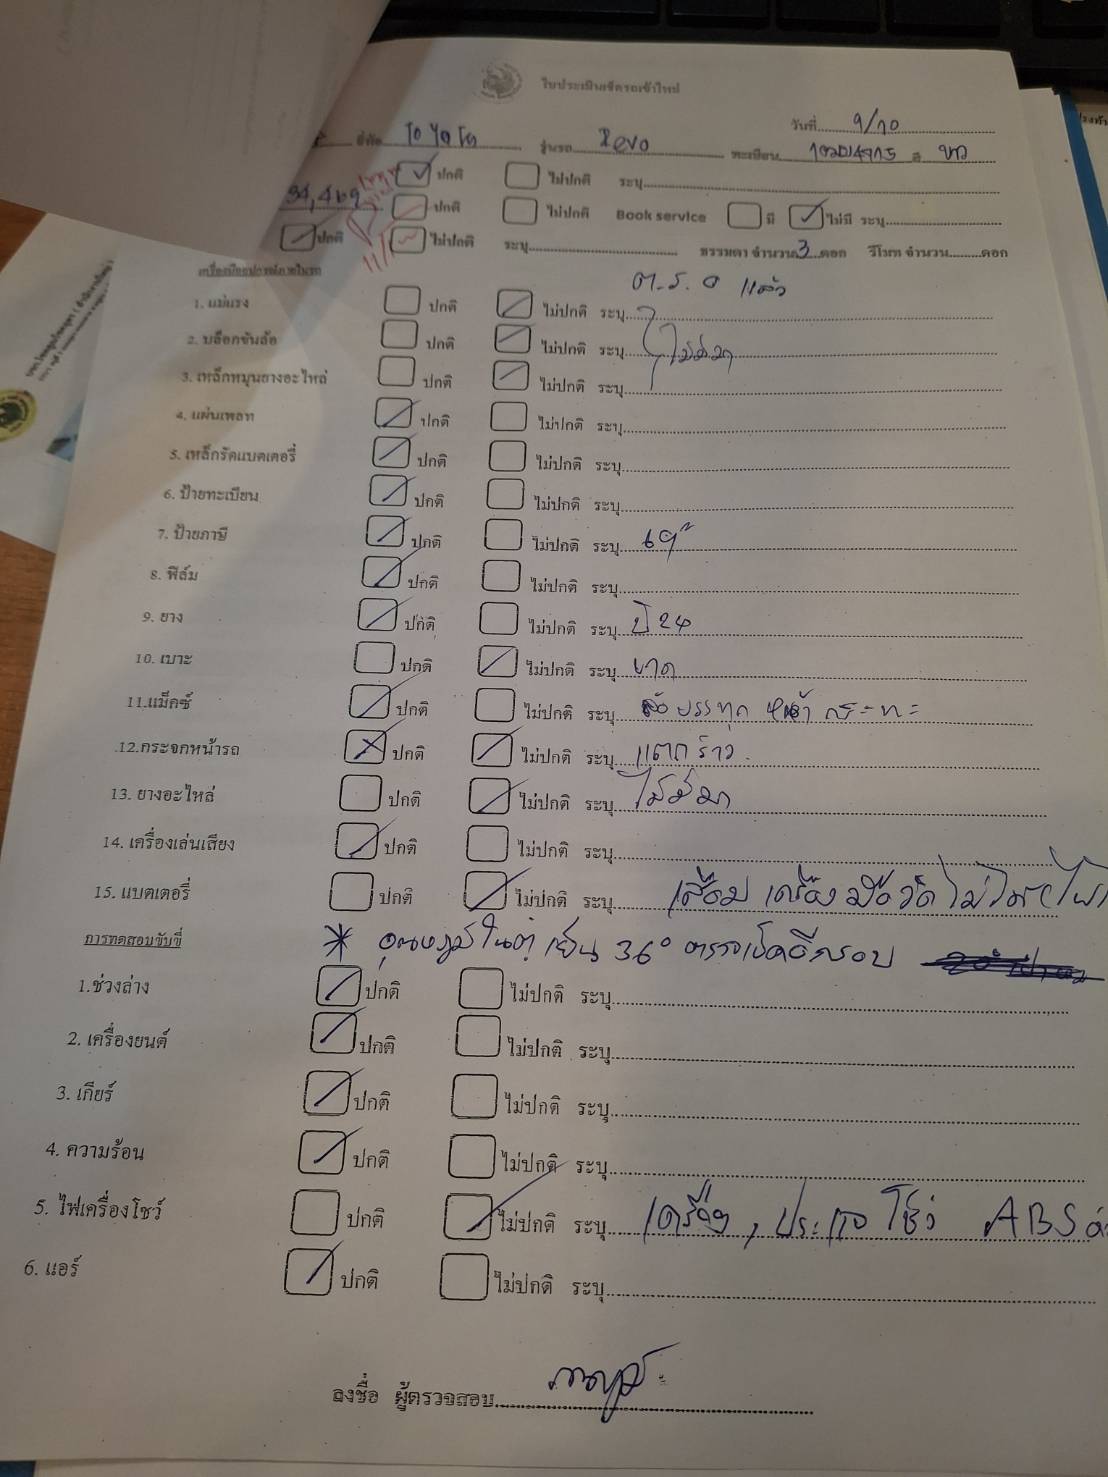 ใบประเมินเช็ครถเข้าใหม่
วันที่ 9/10
ยี่ห้อ โตโยโต รุ่นรถ Revo ทะเบียน สี ขาว
✓ ปกติ ไม่ปกติ ระบุ
94,469 ปกติ ไม่ปกติ Book service มี ✓ ไม่มี ระบุ
ปกติ ไม่ปกติ ระบุ ธรรมดา จำนวน 3 ดอก รีโมท จำนวน ดอก
เครื่องมืออุปกรณ์ภายในรถ ต.ร.อ แล้ว
1. แม่แรง ปกติ / ไม่ปกติ ระบุ
2. บล็อกขันล้อ ปกติ / ไม่ปกติ ระบุ ไม่มีมา
3. เหล็กหมุนยางอะไหล่ ปกติ / ไม่ปกติ ระบุ
4. แผ่นเพลท / ปกติ ไม่ปกติ ระบุ
5. เหล็กรัดแบตเตอรี่ / ปกติ ไม่ปกติ ระบุ
6. ป้ายทะเบียน / ปกติ ไม่ปกติ ระบุ
7. ป้ายภาษี / ปกติ ไม่ปกติ ระบุ 69
8. ฟิล์ม / ปกติ ไม่ปกติ ระบุ
9. ยาง / ปกติ ไม่ปกติ ระบุ ปี 24
10. เบาะ ปกติ / ไม่ปกติ ระบุ ขาด
11.แม็กซ์ / ปกติ ไม่ปกติ ระบุ ล้อ บรรทุก หน้า กระทะ
12.กระจกหน้ารถ ปกติ / ไม่ปกติ ระบุ แตกร้าว
13. ยางอะไหล่ ปกติ / ไม่ปกติ ระบุ ไม่มีมา
14. เครื่องเล่นเสียง / ปกติ ไม่ปกติ ระบุ
15. แบตเตอรี่ ปกติ / ไม่ปกติ ระบุ เสื่อม เครื่องมือวัด
การทดสอบขับขี่ * อุณหภูมิในตู้ เย็น 36° ตรวจเช็คอีกรอบ
1.ช่วงล่าง / ปกติ ไม่ปกติ ระบุ
2. เครื่องยนต์ / ปกติ ไม่ปกติ ระบุ
3. เกียร์ / ปกติ ไม่ปกติ ระบุ
4. ความร้อน / ปกติ ไม่ปกติ ระบุ
5. ไฟเครื่องโชว์ ปกติ / ไม่ปกติ ระบุ เครื่อง, ประแจ โชว์ ABS
6. แอร์ / ปกติ ไม่ปกติ ระบุ
ลงชื่อ ผู้ตรวจสอบ